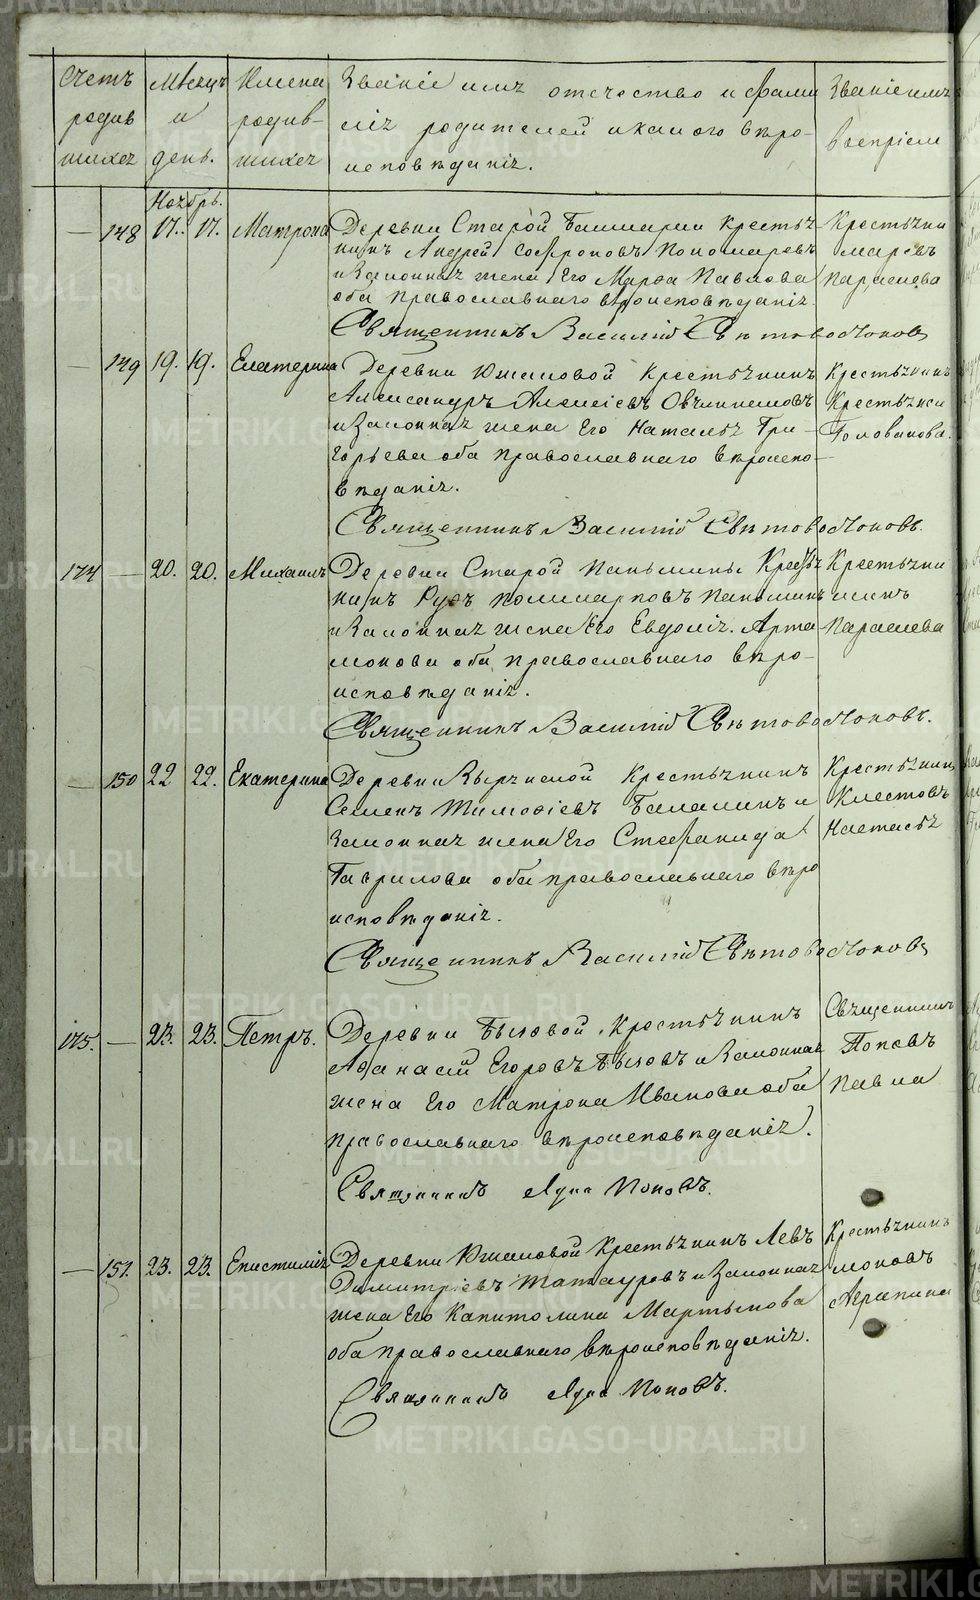 Счетъ родив шихся
Мѣсяцъ и день.
Имена родив- шихся
Званіе имя отчество и фами
лія родителей и какого вѣро-
исповѣданія.
Званіе имя
воспріем
Ноябрь.
— 148 17. 17. Матрона
Деревни Старой Башкарки Крестья
нинъ Андрей Софроновъ Пономаревъ
и Законная жена Его Марѳа Павлова
оба Православнаго вѣроисповѣданія.
Священникъ Василій Свѣтовостоковъ
Крестьяни
маревъ
— 149 19. 19. Екатерина
Деревни Южаковой Крестьянинъ
Александръ Алексіевъ Овчинниковъ
и Законная жена Его Наталья Гри-
горьева оба православнаго вѣроиспо-
вѣданія.
Священникъ Василій Свѣтовостоковъ.
Крестьянинъ
Крестьянск
Голованова.
174 — 20. 20. Михаилъ
Деревни Старой Паньшины Крестья
нинъ Поликарповъ Паньшинъ
и Законная жена Его Евдокія Арта
монова оба православнаго вѣро-
исповѣданія.
Священникъ Василій Свѣтовостоковъ.
Крестьяни
шинъ
— 150 22 22. Екатерина
Деревни Крестьянинъ
Семенъ Тимофіевъ Балакинъ и
Законная жена Его Стефанида
Гаврилова оба православнаго вѣро
исповѣданія.
Священникъ Василій Свѣтовостоковъ
Крестьянин
Клестовъ
Настасья
175. — 23. 23. Петръ.
Деревни Бызовой Крестьянинъ
Афанасій Егоровъ Бызовъ и Законная
жена Его Матрона Иванова оба
православнаго вѣроисповѣданія.
Священникъ Поповъ.
Священникъ
Поповъ
Павла
— 151. 23. 23. Епистимія
Деревни Южаковой Крестьянинъ Левъ
Димитріевъ Татауровъ и Законная
жена Его Капитолина Мартынова
оба Православнаго вѣроисповѣданія.
Священникъ Поповъ.
Крестьянинъ
моновъ
Агрипина
METRIKI.GASO-URAL.RU